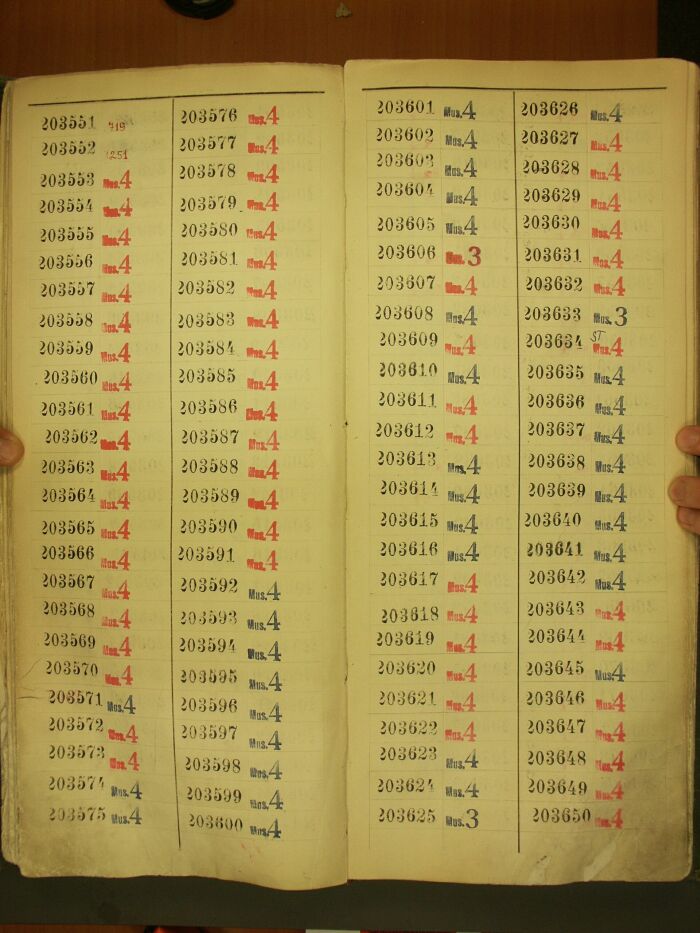 203551 419
203552 1251
203553 Mus.4
203554 Mus.4
203555 Mus.4
203556 Mus.4
203557 Mus.4
203558 Mus.4
203559 Mus.4
203560 Mus.4
203561 Mus.4
203562 Mus.4
203563 Mus.4
203564 Mus.4
203565 Mus.4
203566 Mus.4
203567 Mus.4
203568 Mus.4
203569 Mus.4
203570 Mus.4
203571 Mus.4
203572 Mus.4
203573 Mus.4
203574 Mus.4
203575 Mus.4
203576 Mus.4
203577 Mus.4
203578 Mus.4
203579 Mus.4
203580 Mus.4
203581 Mus.4
203582 Mus.4
203583 Mus.4
203584 Mus.4
203585 Mus.4
203586 Mus.4
203587 Mus.4
203588 Mus.4
203589 Mus.4
203590 Mus.4
203591 Mus.4
203592 Mus.4
203593 Mus.4
203594 Mus.4
203595 Mus.4
203596 Mus.4
203597 Mus.4
203598 Mus.4
203599 Mus.4
203600 Mus.4
203601 Mus.4
203602 Mus.4
203603 Mus.4
203604 Mus.4
203605 Mus.4
203606 Mus.3
203607 Mus.4
203608 Mus.4
203609 Mus.4
203610 Mus.4
203611 Mus.4
203612 Mus.4
203613 Mus.4
203614 Mus.4
203615 Mus.4
203616 Mus.4
203617 Mus.4
203618 Mus.4
203619 Mus.4
203620 Mus.4
203621 Mus.4
203622 Mus.4
203623 Mus.4
203624 Mus.4
203625 Mus.3
203626 Mus.4
203627 Mus.4
203628 Mus.4
203629 Mus.4
203630 Mus.4
203631 Mus.4
203632 Mus.4
203633 Mus.3
203634 ST Mus.4
203635 Mus.4
203636 Mus.4
203637 Mus.4
203638 Mus.4
203639 Mus.4
203640 Mus.4
203641 Mus.4
203642 Mus.4
203643 Mus.4
203644 Mus.4
203645 Mus.4
203646 Mus.4
203647 Mus.4
203648 Mus.4
203649 Mus.4
203650 Mus.4